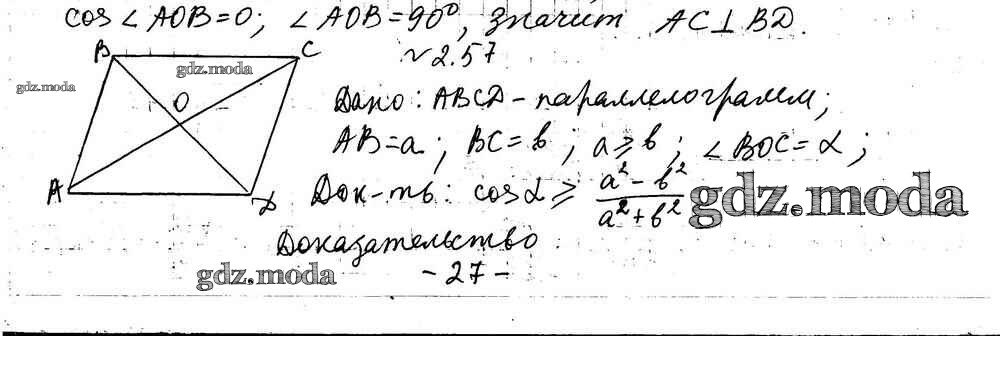 cos ∠ AOB = 0; ∠ AOB = 90°, значит AC ⊥ BD.
~ 2.57
B
C
gdz.moda
gdz.moda
O
Дано: ABCD - параллелограмм;
AB = a; BC = b; a ⩾ b; ∠ BOC = α;
A
D
Док-ть: cos α ⩾ (a² - b²)/(a² + b²)
gdz.moda
Доказательство
gdz.moda
- 27 -